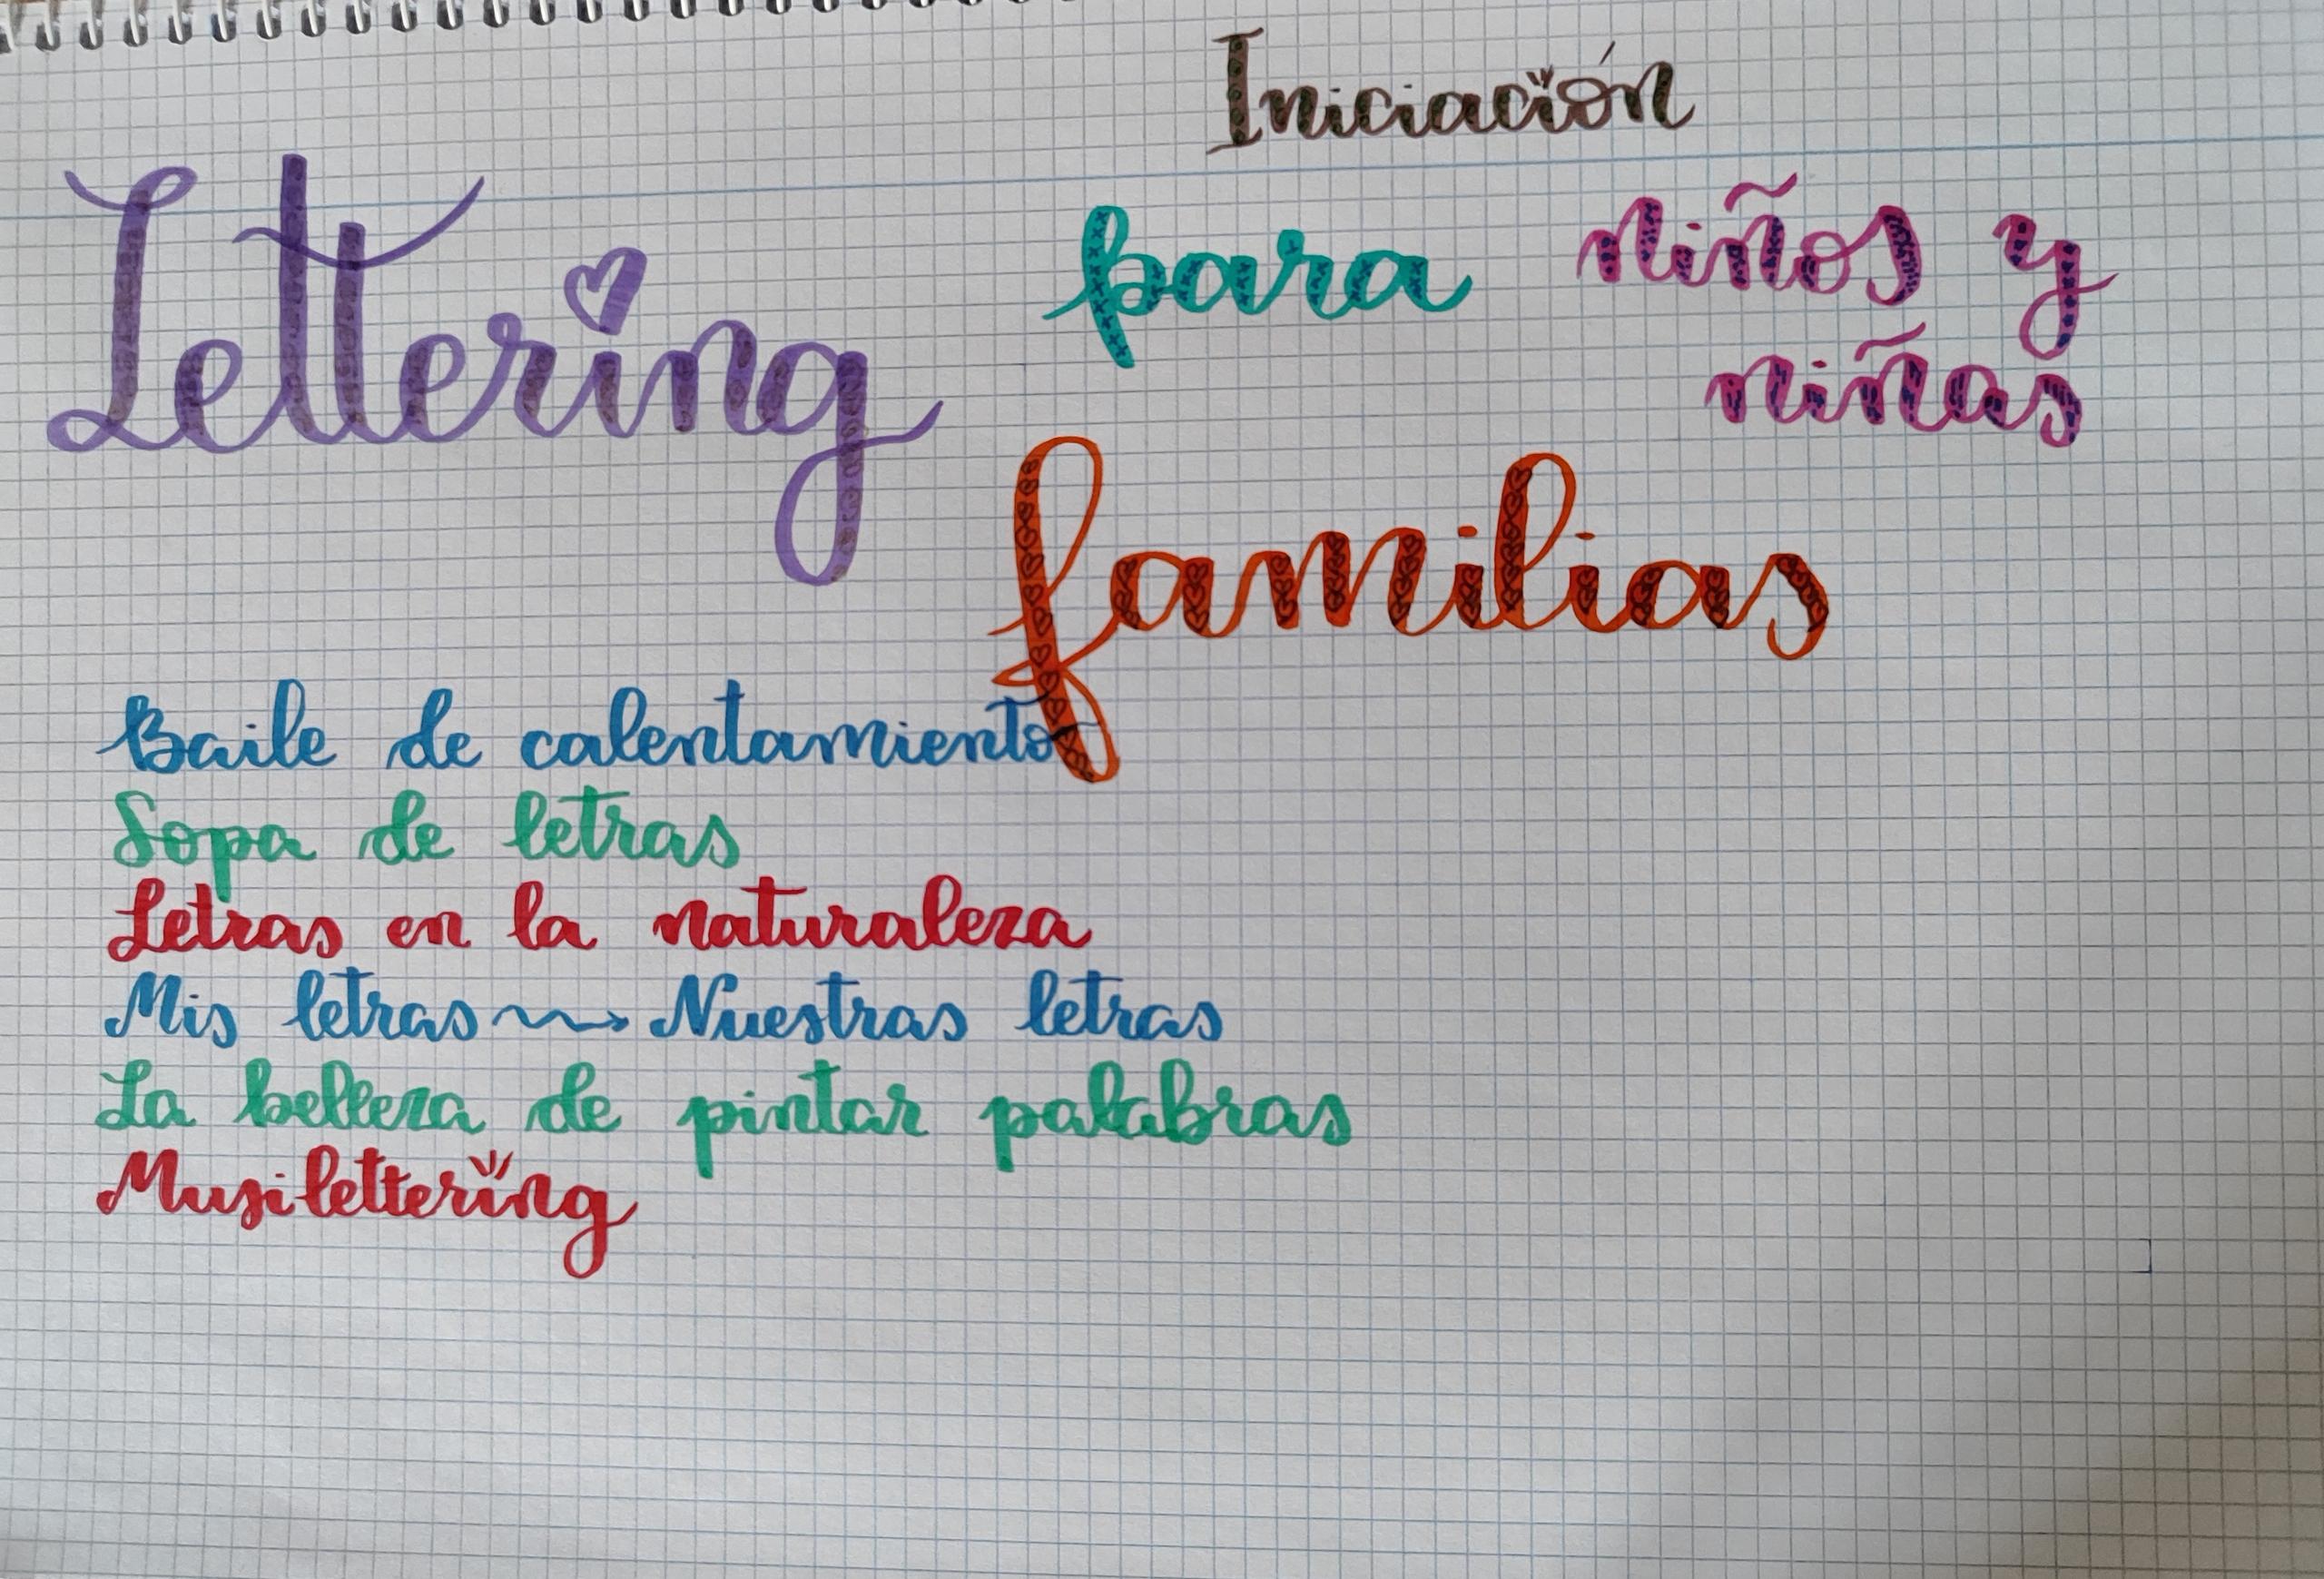 Iniciación
Lettering para niños y
niñas
familias
Baile de calentamiento
Sopa de letras
Letras en la naturaleza
Mis letras → Nuestras letras
La belleza de pintar palabras
Musilettering